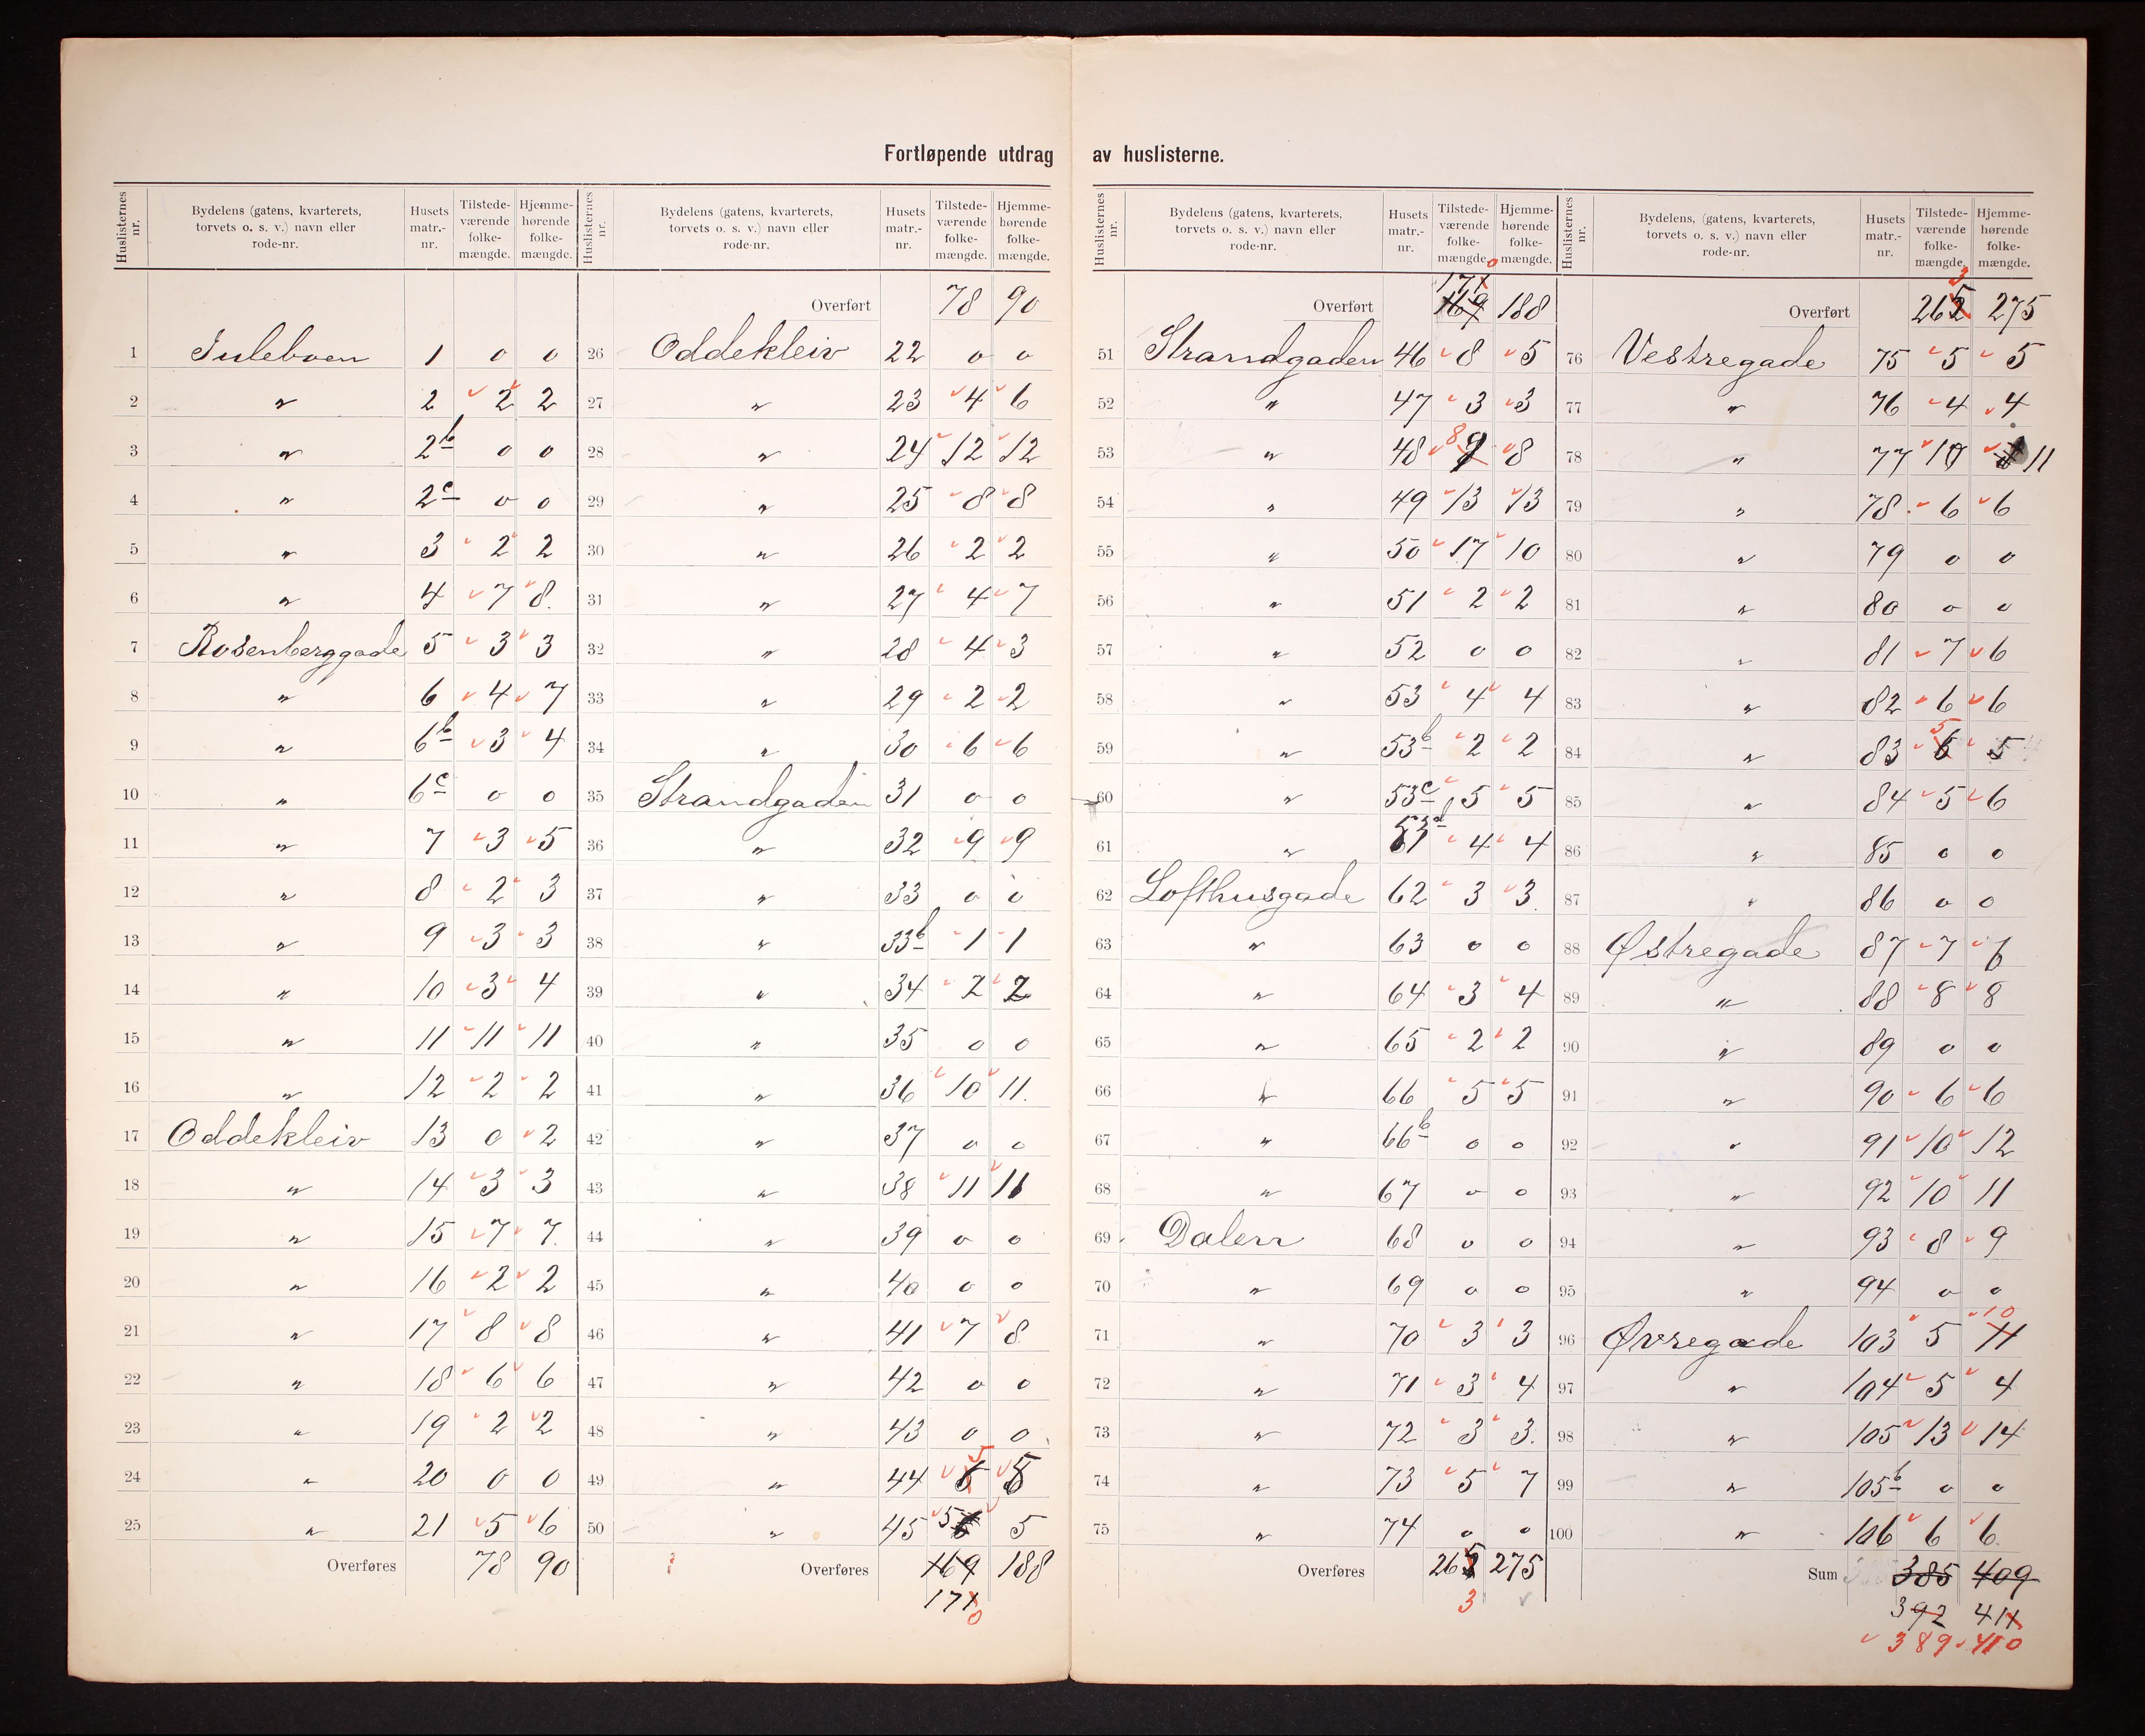 Fortløpende utdrag av huslisterne.
Huslisternes nr. | Bydelens (gatens, kvarterets, torvets o. s. v.) navn eller rode-nr. | Husets matr.-nr. | Tilstede-værende folke-mængde. | Hjemme-hørende folke-mængde.
1 Juleboen 1 0 0
2 " 2 2 2
3 " 2b 0 0
4 " 2c 0 0
5 " 3 2 2
6 " 4 7 8.
7 Rosenberggade 5 3 3
8 " 6 4 7
9 " 6b 3 4
10 " 6c 0 0
11 " 7 3 5
12 " 8 2 3
13 " 9 3 3
14 " 10 3 4
15 " 11 11 11
16 " 12 2 2
17 Oddekleiv 13 0 2
18 " 14 3 3
19 " 15 7 7.
20 " 16 2 2
21 " 17 8 8
22 " 18 6 6
23 " 19 2 2
24 " 20 0 0
25 " 21 5 6
Overføres 78 90
Huslisternes nr. | Bydelens (gatens, kvarterets, torvets o. s. v.) navn eller rode-nr. | Husets matr.-nr. | Tilstede-værende folke-mængde. | Hjemme-hørende folke-mængde.
Overført 78 90
26 Oddekleiv 22 0 0
27 " 23 4 6
28 " 24 12 12
29 " 25 8 8
30 " 26 2 2
31 " 27 4 7
32 " 28 4 3
33 " 29 2 2
34 " 30 6 6
35 Strandgaden 31 0 0
36 " 32 9 9
37 " 33 0 0
38 " 33b 1 1
39 " 34 2 2
40 " 35 0 0
41 " 36 10 11.
42 " 37 0 0
43 " 38 11 11
44 " 39 0 0
45 " 40 0 0
46 " 41 7 8
47 " 42 0 0
48 " 43 0 0
49 " 44 5 5
50 " 45 5 5
Overføres 169 188
171 0
Huslisternes nr. | Bydelens (gatens, kvarterets, torvets o. s. v.) navn eller rode-nr. | Husets matr.-nr. | Tilstede-værende folke-mængde. | Hjemme-hørende folke-mængde.
171 0
Overført 169 188
51 Strandgaden 46 8 5
52 " 47 3 3
53 " 48 8 9 8
54 " 49 13 13
55 " 50 17 10
56 " 51 2 2
57 " 52 0 0
58 " 53 4 4
59 " 53b 2 2
60 " 53c 5 5
61 " 53d 4 4
62 Lofthusgade 62 3 3.
63 " 63 0 0
64 " 64 3 4
65 " 65 2 2
66 " 66 5 5
67 " 66b 0 0
68 " 67 0 0
69 Dalen 68 0 0
70 " 69 0 0
71 " 70 3 3
72 " 71 3 4
73 " 72 3 3.
74 " 73 5 7
75 " 74 0 0
Overføres 265 275
3
Huslisternes nr. | Bydelens, (gatens, kvarterets, torvets o. s. v.) navn eller rode-nr. | Husets matr.-nr. | Tilstede-værende folke-mængde. | Hjemme-hørende folke-mængde.
3
Overført 265 275
76 Vestregade 75 5 5
77 " 76 4 4
78 " 77 10 11
79 " 78 6 6
80 " 79 0 0
81 " 80 0 0
82 " 81 7 6
83 " 82 6 6
84 " 83 5 6 5
85 " 84 5 6
86 " 85 0 0
87 " 86 0 0
88 Østregade 87 7 6
89 " 88 8 8
90 " 89 0 0
91 " 90 6 6
92 " 91 10 12
93 " 92 10 11
94 " 93 8 9
95 " 94 0 0
96 Øvregade 103 5 10 11
97 " 104 5 4
98 " 105 13 14
99 " 105b 0 0
100 " 106 6 6.
Sum 385 409
392 411
389 410